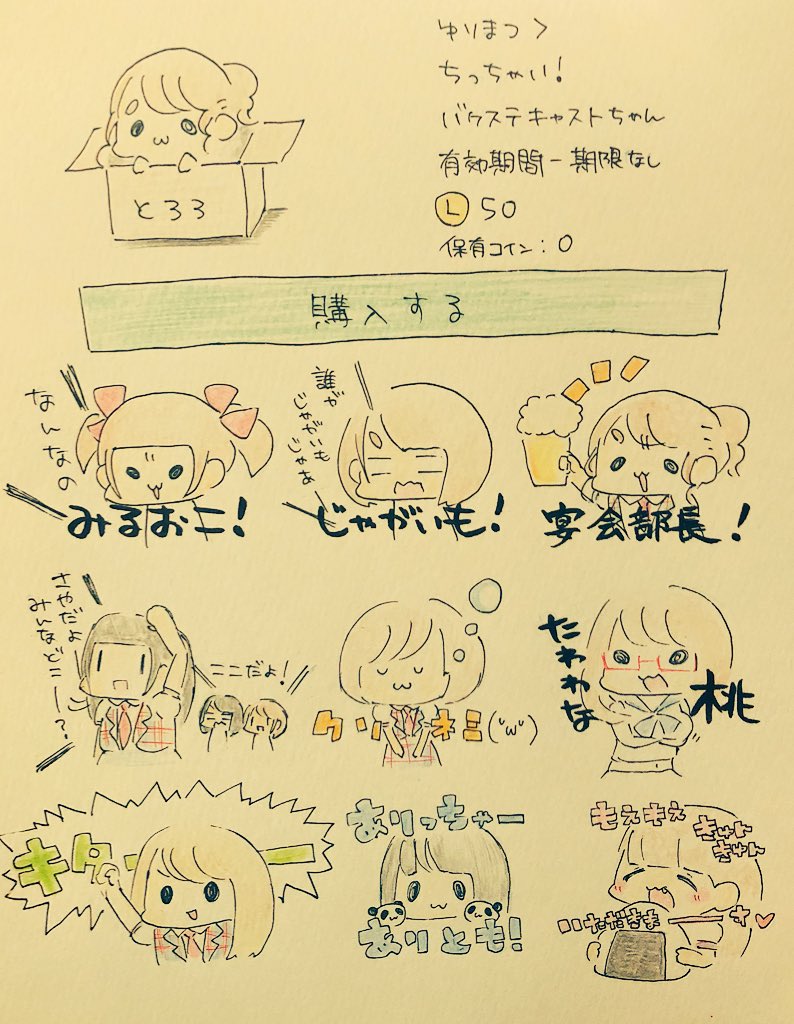 ゆりまつ >
ちっちゃい!
バクステキャストちゃん
有効期間-期限なし
Ⓛ 50
保有コイン:0
ところ
購入する
なんなの
みるおこ!
誰が
じゃがいも
じゃぁ
じゃがいも!
宴会部長!
さやだよー
みんなどこー?
ここだよ!
クリネミ(˘ω˘)
たわわな
桃
キター
ありっちゃー
ありとも!
もえもえ
きゅん
きゅん
いただきまーす♡